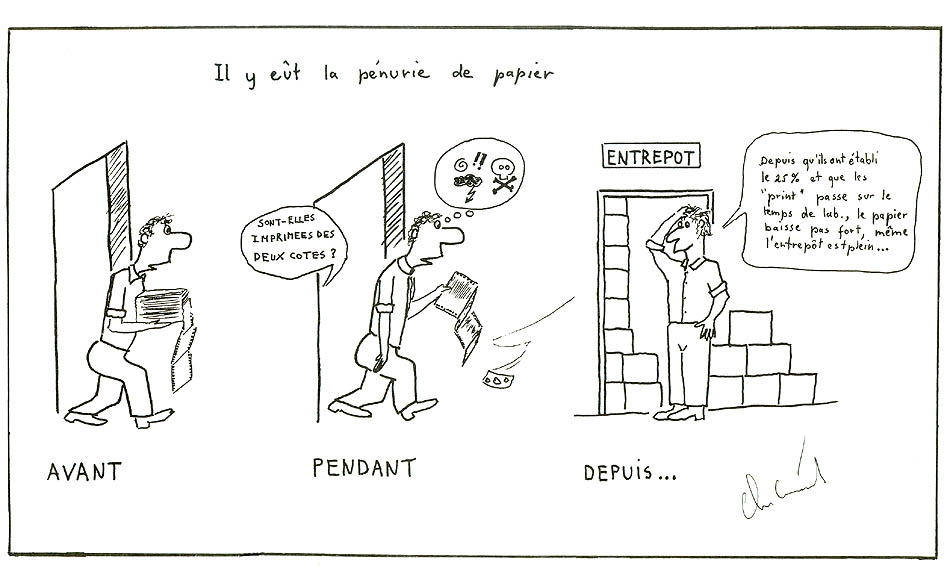 Il y eût la pénurie de papier
SONT-ELLES
IMPRIMEES DES
DEUX COTES ?
!!
ENTREPOT
Depuis qu'ils ont établi
le 25% et que les
"print" passe sur le
temps de lab., le papier
baisse pas fort, même
l'entrepôt est plein...
AVANT
PENDANT
DEPUIS...